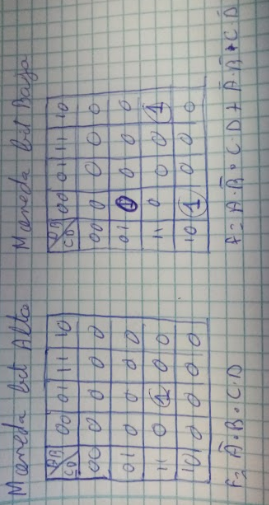 Moneda bit Alto
AB
CD 00 01 11 10
00 0 0 0 0
01 0 0 0 0
11 0 1 0 0
10 0 0 0 0
F= Ā·B·C·D
Moneda bit Bajo
AB
CD 00 01 11 10
00 0 0 0 0
01 0 0 0 0
11 0 0 0 1
10 1 0 0 0
F= A·B̄·C·D + Ā·B̄·C·D̄